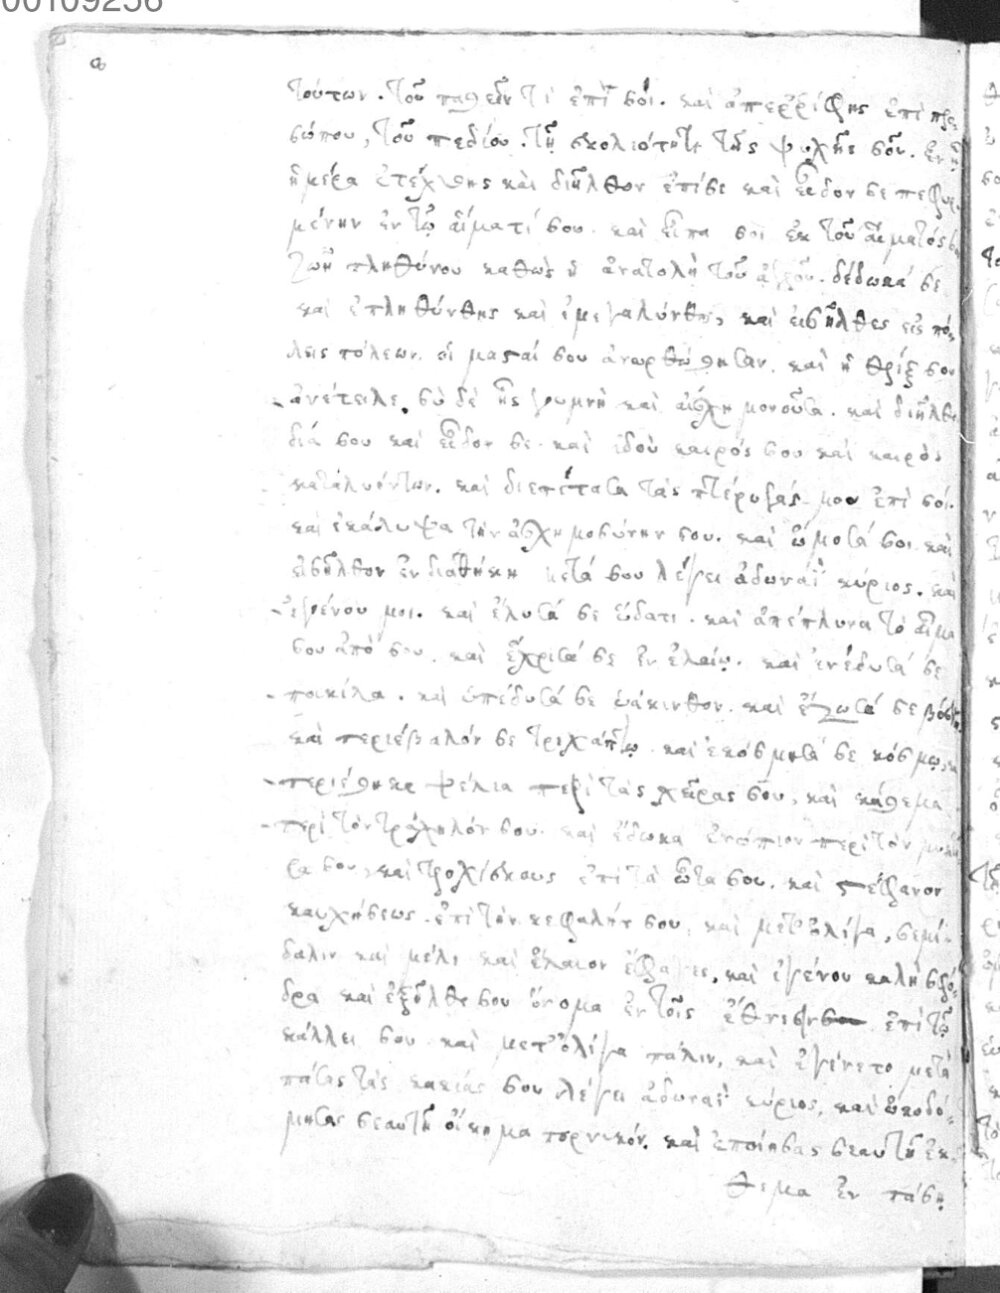 00109256
α
τούτων. τοῦ παθεῖν τί ἐπῒ σοί. καὶ ἀπερρίφης ἐπὶ προ
σώπου, τοῦ πεδίου. τῇ σκολιότητι τῆς ψυχῆς σοῦ. ἐν ᾗ
ἡμέρα ἐτέχθης καὶ διῆλθον ἐπίσε καὶ εἶδον σε πεφυρ
μένην ἐν τῷ αἵματί σου. καὶ εἶπα σοι ἐκ τοῦ αἵματός σου
ζωὴ πληθύνου καθὼς ἡ ἀνατολὴ τοῦ ἀγροῦ. δέδωκά σε
καὶ ἐπληθύνθης καὶ ἐμεγαλύνθης, καὶ εἰσῆλθες εἰς πό
λεις πόλεων. οἱ μαστοί σου ἀνωρθώθησαν. καὶ ἡ θρίξ σου
ἀνέτειλε. σὺ δὲ ἦς γυμνὴ καὶ ἀσχημονοῦσα. καὶ διῆλθον
διά σου καὶ εἶδον σε. καὶ ἰδοὺ καιρός σου καὶ καιρὸς
καταλυόντων. καὶ διεπέτασα τὰς πτέρυγάς μου ἐπὶ σοί.
καὶ ἐκάλυψα τὴν ἀσχημοσύνην σου. καὶ ὤμοσά σοι καὶ
εἰσῆλθον ἐν διαθήκη μετά σου λέγει ἀδωναῒ κύριος. καὶ
ἐγένου μοι. καὶ ἔλουσά σε ὕδατι. καὶ ἀπέπλυνα τὸ αἷμα
σου ἀπό σου. καὶ ἔχρισά σε ἐν ἐλαίῳ. καὶ ἐνέδυσά σε
ποικίλα. καὶ ὑπέδυσά σε ὑάκινθον. καὶ ἔζωσά σε βύσσῳ
καὶ περιέβαλόν σε τριχάπτῳ. καὶ ἐκόσμησά σε κόσμῳ, καὶ
περιέθηκα ψέλια περὶ τὰς χεῖρας σου, καὶ κάθεμα
περὶ τὸν τράχηλόν σου. καὶ ἔδωκα ἐνώπιον περὶ τὸν μυκτῆ
ρα σου, καὶ τροχίσκους ἐπὶ τὰ ὦτα σου. καὶ στέφανον
καυχήσεως. ἐπὶ τὴν κεφαλήν σου. καὶ μετ' ὀλίγα, σεμί
δαλιν καὶ μέλι καὶ ἔλαιον ἔφαγες, καὶ ἐγένου καλὴ σφό
δρα καὶ ἐξῆλθε σου ὄνομα ἐν τοῖς ἔθνεσιν ἐπὶ τῷ
κάλλει σου καὶ μετ' ὀλίγα πάλιν, καὶ ἐγένετο μετὰ
πάσας τὰς κακίας σου λέγει ἀδωναῒ κύριος, καὶ ὠκοδό
μησας σεαυτῇ οἴκημα πορνικόν. καὶ ἐποίησας σεαυτῇ ἔκ
θεμα ἐν πάσῃ